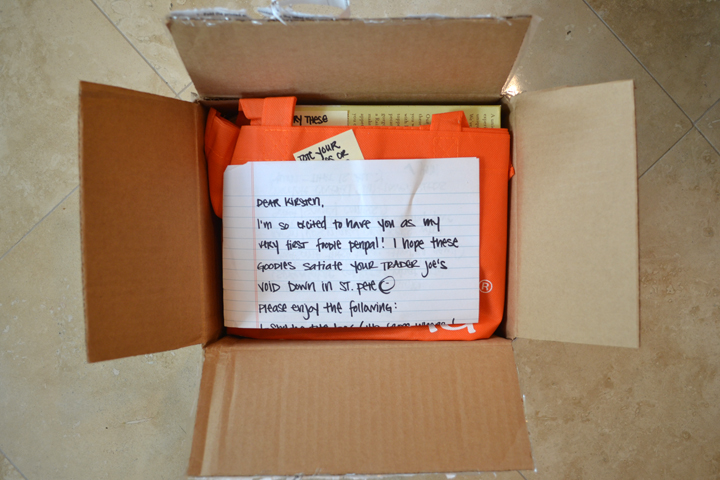 RY THESE
TOTE YOUR
OR
DEAR KIRSTEN,
I'm so excited to have you as my
very first foodie penpal! I hope these
GOODIES satiate your TRADER JOE'S
VOID DOWN IN ST. Pete
Please enjoy the following:
®